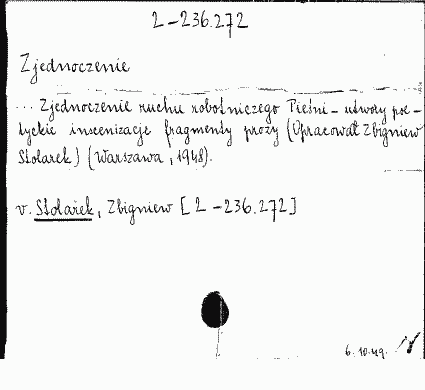 2-236.272
Zjednoczenie
... Zjednoczenie ruchu robotniczego Pieśni - utwory poe-
tyckie inscenizacje fragmenty prozy (Opracował Zbigniew
Stolarek) (Warszawa, 1948).
v. Stolarek, Zbigniew [2-236.272]
6.10.49.